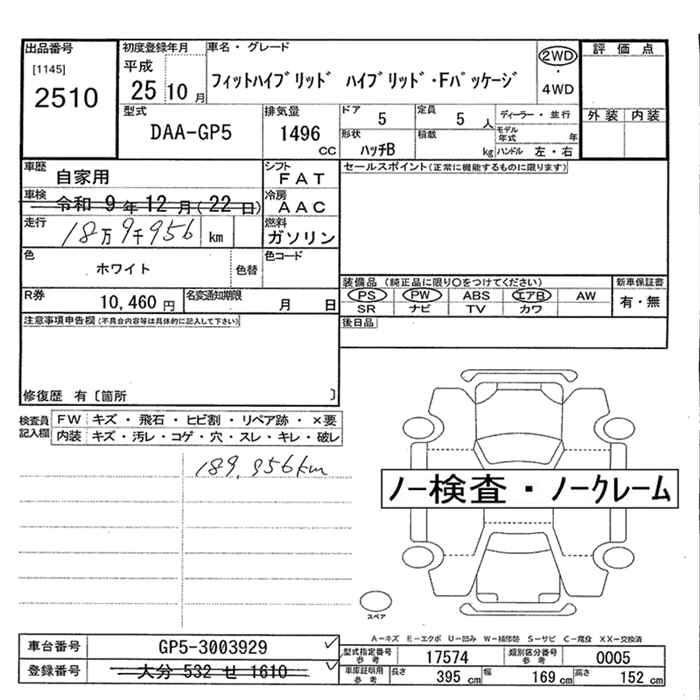 出品番号
[1145]
2510
初度登録年月
平成
25 10 月
車名・グレード
フィットハイブリッド ハイブリッド・Fパッケージ
2WD
・
4WD
評価点
外装 内装
型式
DAA-GP5
排気量
1496
CC
ドア
5
定員
5 人
ディーラー・並行
モデル
年式 年
形状
ハッチB
積載
kg
ハンドル 左・右
車歴
自家用
シフト
FAT
セールスポイント(正常に機能するものに限ります)
車検
令和 9 年 12 月 ( 22 日)
冷房
AAC
走行
18万9千956 km
燃料
ガソリン
色
ホワイト
色替
色コード
R券
10,460 円
名変通知期限
月 日
装備品 (純正品に限り○をつけてください)
PS PW ABS エアB AW
SR ナビ TV カワ
新車保証書
有・無
後日品
注意事項申告欄(不具合内容等は具体的に記入して下さい)
修復歴 有〔箇所 〕
検査員
記入欄
FW キズ・飛石・ヒビ割・リペア跡・×要
内装 キズ・汚レ・コゲ・穴・スレ・キレ・破レ
189,956km
ノー検査・ノークレーム
スペア
A-キズ E-エクボ U-凹み W-補修跡 S-サビ C-腐食 XX-交換済
車台番号
GP5-3003929
登録番号
大分 532 せ 1610
型式指定番号
参考
17574
類別区分番号
参考
0005
車庫証明用
参考
長さ 395 cm 幅 169 cm 高さ 152 cm